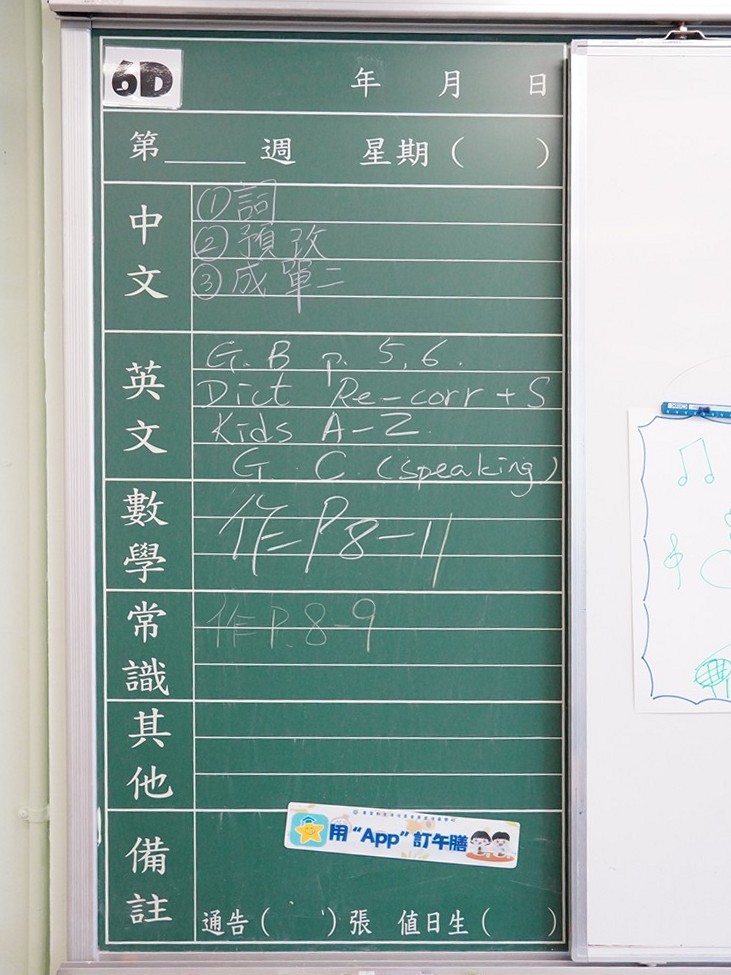 6D
年 月 日
第____週 星期( )
中文
①詞
②預改
③成單二
英文
G.B p. 5, 6.
Dict Re-corr + S
Kids A-Z
G. C. (speaking)
數學
作=P8-11
常識
作P.8-9
其他
備註
用“App”訂午膳
通告( )張 值日生( )